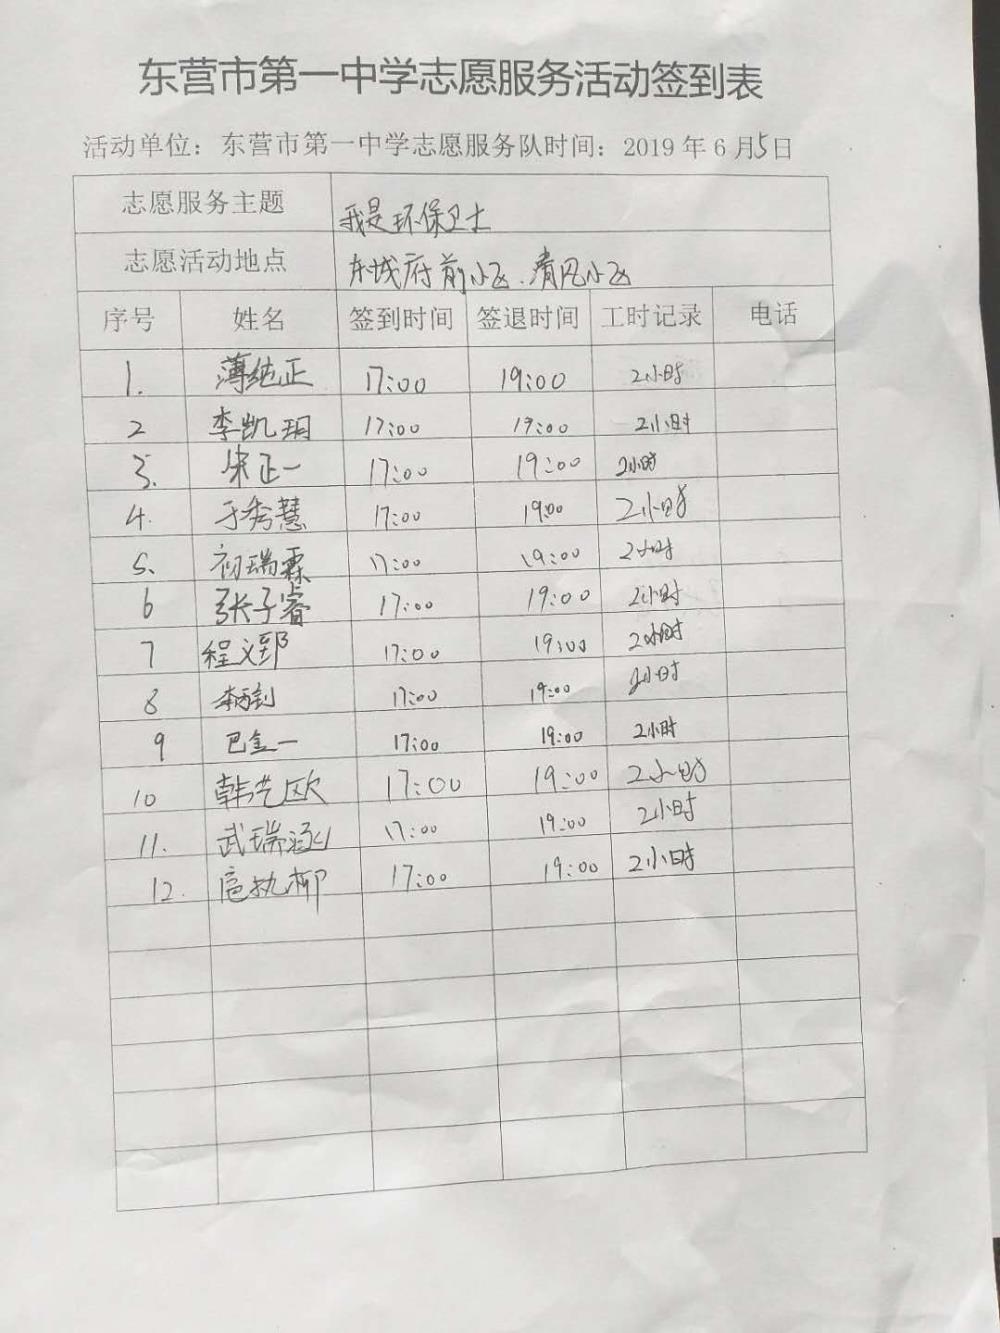 东营市第一中学志愿服务活动签到表
活动单位：东营市第一中学志愿服务队时间：2019 年 6 月 5 日
志愿服务主题 我是环保卫士
志愿活动地点 东城府前小区.清风小区
序号 姓名 签到时间 签退时间 工时记录 电话
1. 薄纯正 17:00 19:00 2小时
2 李凯玥 17:00 19:00 2小时
3. 宋正一 17:00 19:00 2小时
4. 于秀慧 17:00 19:00 2小时
5. 初瑞霖 17:00 19:00 2小时
6 张子睿 17:00 19:00 2小时
7 程文郅 17:00 19:00 2小时
8 17:00 19:00 2小时
9 巴金一 17:00 19:00 2小时
10 韩艺欧 17:00 19:00 2小时
11. 武瑞涵 17:00 19:00 2小时
12. 扈执柳 17:00 19:00 2小时